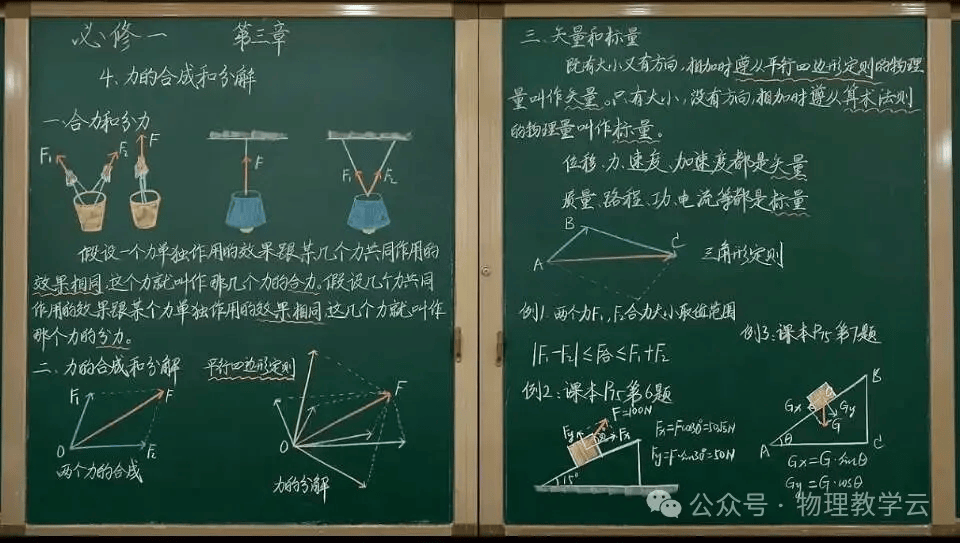 必修一 第三章
4、力的合成和分解
一、合力和分力
F₁ F₂ F
F
F₁ F₂
假设一个力单独作用的效果跟某几个力共同作用的
效果相同,这个力就叫作那几个力的合力。假设几个力共同
作用的效果跟某个力单独作用的效果相同,这几个力就叫作
那个力的分力。
二、力的合成和分解 平行四边形定则
F₁ F
O F₂
两个力的合成
F
O
力的分解
三、矢量和标量
既有大小又有方向,相加时遵从平行四边形定则的物理
量叫作矢量。只有大小,没有方向,相加时遵从算术法则
的物理量叫作标量。
位移、力、速度、加速度都是矢量
质量、路程、功、电流等都是标量
B
A C
三角形定则
例1.两个力F₁、F₂合力大小取值范围
|F₁-F₂|≤F合≤F₁+F₂
例2:课本P75第6题
F=100N
Fy Fx
15°
Fx=F·cos30°=50√3N
Fy=F·sin30°=50N
例3:课本P75第7题
B
Gx Gy
G
A θ C
Gx=G·sinθ
Gy=G·cosθ
公众号·物理教学云